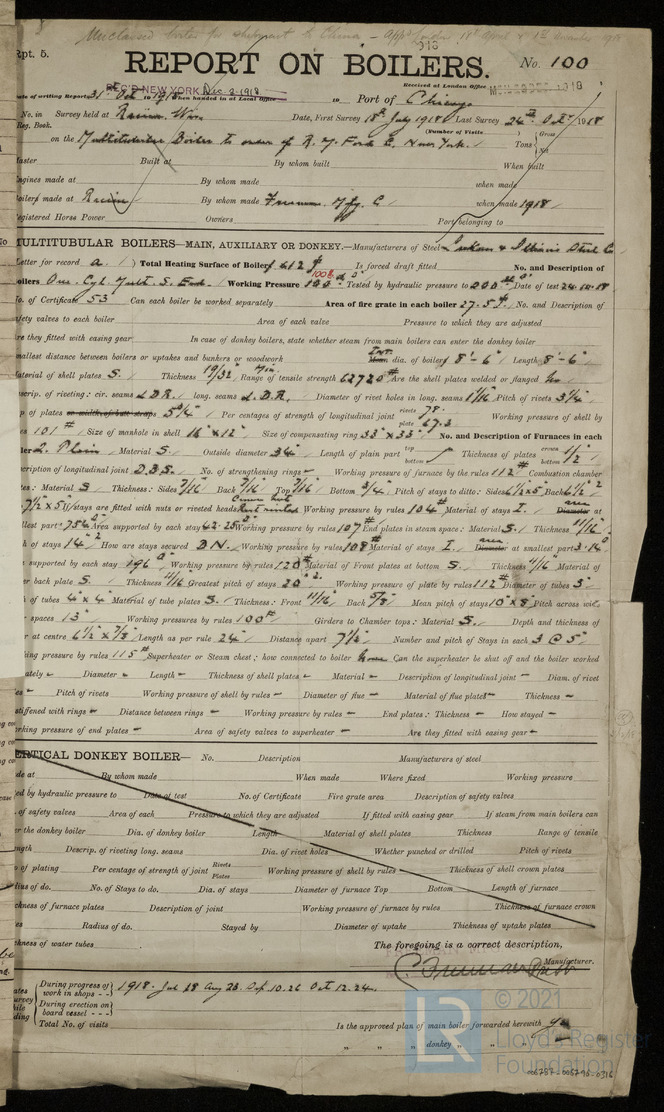 Unclassed boiler for shipment to China - 18th April 1918
Rpt. 5.
REPORT ON BOILERS.
No. 100
REC'D NEW YORK Dec 2 1918
Received at London Office
Date of writing Report 31 Oct 1918 when handed in at Local Office to Port of Chicago
No. in Survey held at Racine, Wis. Date, First Survey 18th July 1918 Last Survey 24th Oct 1918
Reg. Book.
(Number of Visits
on the Multitubular Boiler to order of R. Y. Ford Co. New York. Tons { Gross Net
Master Built at By whom built When built
Engines made at By whom made when made
Boilers made at Racine By whom made Freeman Mfg. Co when made 1918
Registered Horse Power Owners Port belonging to
MULTITUBULAR BOILERS—MAIN, AUXILIARY OR DONKEY.—Manufacturers of Steel Inland & Illinois Steel Co
Letter for record a. ) Total Heating Surface of Boilers 612 Is forced draft fitted No. and Description of
Boilers One. Cyl. Mult. S. End. Working Pressure 100 Tested by hydraulic pressure to 200 Date of test 24.10.18
No. of Certificate 53 Can each boiler be worked separately Area of fire grate in each boiler 27.5 No. and Description of
safety valves to each boiler Area of each valve Pressure to which they are adjusted
Are they fitted with easing gear In case of donkey boilers, state whether steam from main boilers can enter the donkey boiler
Smallest distance between boilers or uptakes and bunkers or woodwork Int. dia. of boilers 8'-6" Length 8'-6"
Material of shell plates S. Thickness 19/32" Range of tensile strength 62720 Are the shell plates welded or flanged
Descrip. of riveting: cir. seams L.D.R. long. seams L.D.R. Diameter of rivet holes in long. seams 1 1/16 Pitch of rivets 3 1/4"
Lap of plates or width of butt straps 5 3/4" Per centages of strength of longitudinal joint rivets 78. plate 67.3 Working pressure of shell by
rules 101# Size of manhole in shell 16"x12" Size of compensating ring 33"x33" No. and Description of Furnaces in each
boiler 2. Plain Material S Outside diameter 34" Length of plain part top bottom Thickness of plates crown bottom 1/2"
Description of longitudinal joint D.B.S. No. of strengthening rings - Working pressure of furnace by the rules 112# Combustion chamber
plates: Material S Thickness: Sides 9/16 Back 9/16 Top 9/16 Bottom 3/4" Pitch of stays to ditto: Sides 6 1/2 x 5 Back 6 1/2"
7 1/2 x 5 If stays are fitted with nuts or riveted heads Working pressure by rules 104 Material of stays I. Diameter at
smallest part .754 Area supported by each stay 42.25 Working pressure by rules 107# End plates in steam space: Material S. Thickness 11/16"
Pitch of stays 14" How are stays secured D.N. Working pressure by rules 108# Material of stays I. area Diameter at smallest part 3.14
Area supported by each stay 196 Working pressure by rules 120# Material of Front plates at bottom S. Thickness 11/16 Material of
Lower back plate S. Thickness 11/16 Greatest pitch of stays 20" Working pressure of plate by rules 112# Diameter of tubes 3"
Pitch of tubes 4"x4" Material of tube plates S. Thickness: Front 11/16" Back 5/8" Mean pitch of stays 10"x8" Pitch across wide
water spaces 13" Working pressures by rules 100# Girders to Chamber tops: Material S. Depth and thickness of
girder at centre 6 1/2 x 7/8 Length as per rule 24" Distance apart 7 1/2" Number and pitch of Stays in each 3 @ 5"
Working pressure by rules 115# Superheater or Steam chest; how connected to boiler None Can the superheater be shut off and the boiler worked
separately - Diameter - Length - Thickness of shell plates - Material - Description of longitudinal joint - Diam. of rivet
holes - Pitch of rivets Working pressure of shell by rules - Diameter of flue - Material of flue plates - Thickness -
If stiffened with rings - Distance between rings - Working pressure by rules - End plates: Thickness - How stayed -
Working pressure of end plates - Area of safety valves to superheater - Are they fitted with easing gear -
VERTICAL DONKEY BOILER— No. Description Manufacturers of steel
Made at By whom made When made Where fixed Working pressure
tested by hydraulic pressure to Date of test No. of Certificate Fire grate area Description of safety valves
No. of safety valves Area of each Pressure to which they are adjusted If fitted with easing gear If steam from main boilers can
enter the donkey boiler Dia. of donkey boiler Length Material of shell plates Thickness Range of tensile
strength Descrip. of riveting long. seams Dia. of rivet holes Whether punched or drilled Pitch of rivets
Lap of plating Per centage of strength of joint Rivets Plates Working pressure of shell by rules Thickness of shell crown plates
Radius of do. No. of Stays to do. Dia. of stays Diameter of furnace Top Bottom Length of furnace
Thickness of furnace plates Description of joint Working pressure of furnace by rules Thickness of furnace crown
plates Radius of do. Stayed by Diameter of uptake Thickness of uptake plates
Thickness of water tubes The foregoing is a correct description,
Manufacturer.
Dates of Survey while building
During progress of work in shops - - 1918. Jul 18 Aug 23. Sep. 10. 26 Oct 12. 24.
During erection on board vessel - - -
Total No. of visits
Is the approved plan of main boiler forwarded herewith Yes
" " " donkey " " "
LR © 2021
Lloyd's Register
Foundation
006787-006796-0316